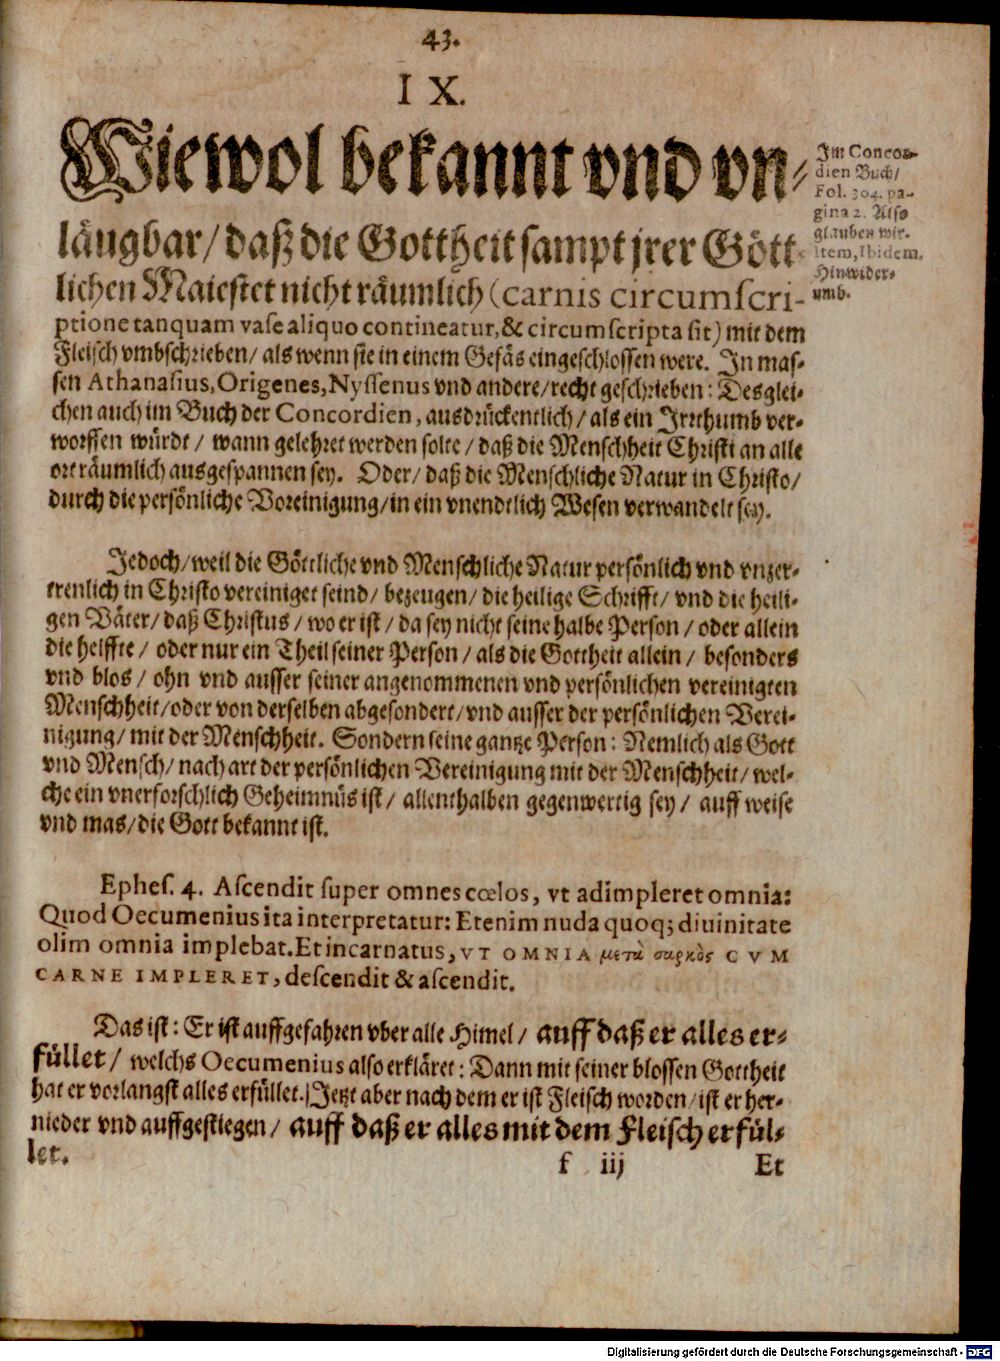 43.
IX.
Wiewol bekannt vnd vn-
läugbar/ daß die Gottheit sampt jrer Gött-
lichen Maiestet nicht räumlich (carnis circumscri-
ptione tanquam vase aliquo contineatur, & circumscripta sit) mit dem
Fleisch vmbschrieben/ als wenn sie in einem Gefäs eingeschlossen were. In mas-
sen Athanasius, Origenes, Nyssenus vnd andere/ recht geschrieben: Desglei-
chen auch im Buch der Concordien, ausdrückentlich/ als ein Irrthumb ver-
worffen würdt/ wann gelehret werden solte/ daß die Menschheit Christi an alle
ort räumlich ausgespannen sey. Oder/ daß die Menschliche Natur in Christo/
durch die persönliche Voreinigung/ in ein vnendtlich Wesen verwandelt sey.
Im Concor-
dien Buch/
Fol. 304. pa-
gina 2. Also
glauben wir.
Item, Ibidem.
Hinwider-
umb.
Jedoch/ weil die Göttliche vnd Menschliche Natur persönlich vnd vnzer-
trenlich in Christo vereiniget seind/ bezeugen/ die heilige Schrifft/ vnd die heili-
gen Väter/ daß Christus/ wo er ist/ da sey nicht seine halbe Person/ oder allein
die helffte/ oder nur ein Theil seiner Person/ als die Gottheit allein/ besonders
vnd blos/ ohn vnd ausser seiner angenommenen vnd persönlichen vereinigten
Menschheit/ oder von derselben abgesondert/ vnd ausser der persönlichen Verei-
nigung/ mit der Menschheit. Sondern seine gantze Person: Nemlich als Gott
vnd Mensch/ nach art der persönlichen Vereinigung mit der Menschheit/ wel-
che ein vnerforschlich Geheimnüs ist/ allenthalben gegenwertig sey/ auff weise
vnd mas/ die Gott bekannt ist.
Ephes. 4. Ascendit super omnes cœlos, vt adimpleret omnia:
Quod Oecumenius ita interpretatur: Etenim nuda quoq; diuinitate
olim omnia implebat. Et incarnatus, VT OMNIA μετὰ σαρκὸς CVM
CARNE IMPLERET, descendit & ascendit.
Das ist: Er ist auffgefahren vber alle Himel/ auff daß er alles er-
füllet/ welchs Oecumenius also erkläret: Dann mit seiner blossen Gottheit
hat er vorlangst alles erfüllet. Jetzt aber nach dem er ist Fleisch worden/ ist er her-
nieder vnd auffgestiegen/ auff daß er alles mit dem Fleisch erfül-
let.
f iij Et
Digitalisierung gefördert durch die Deutsche Forschungsgemeinschaft - DFG